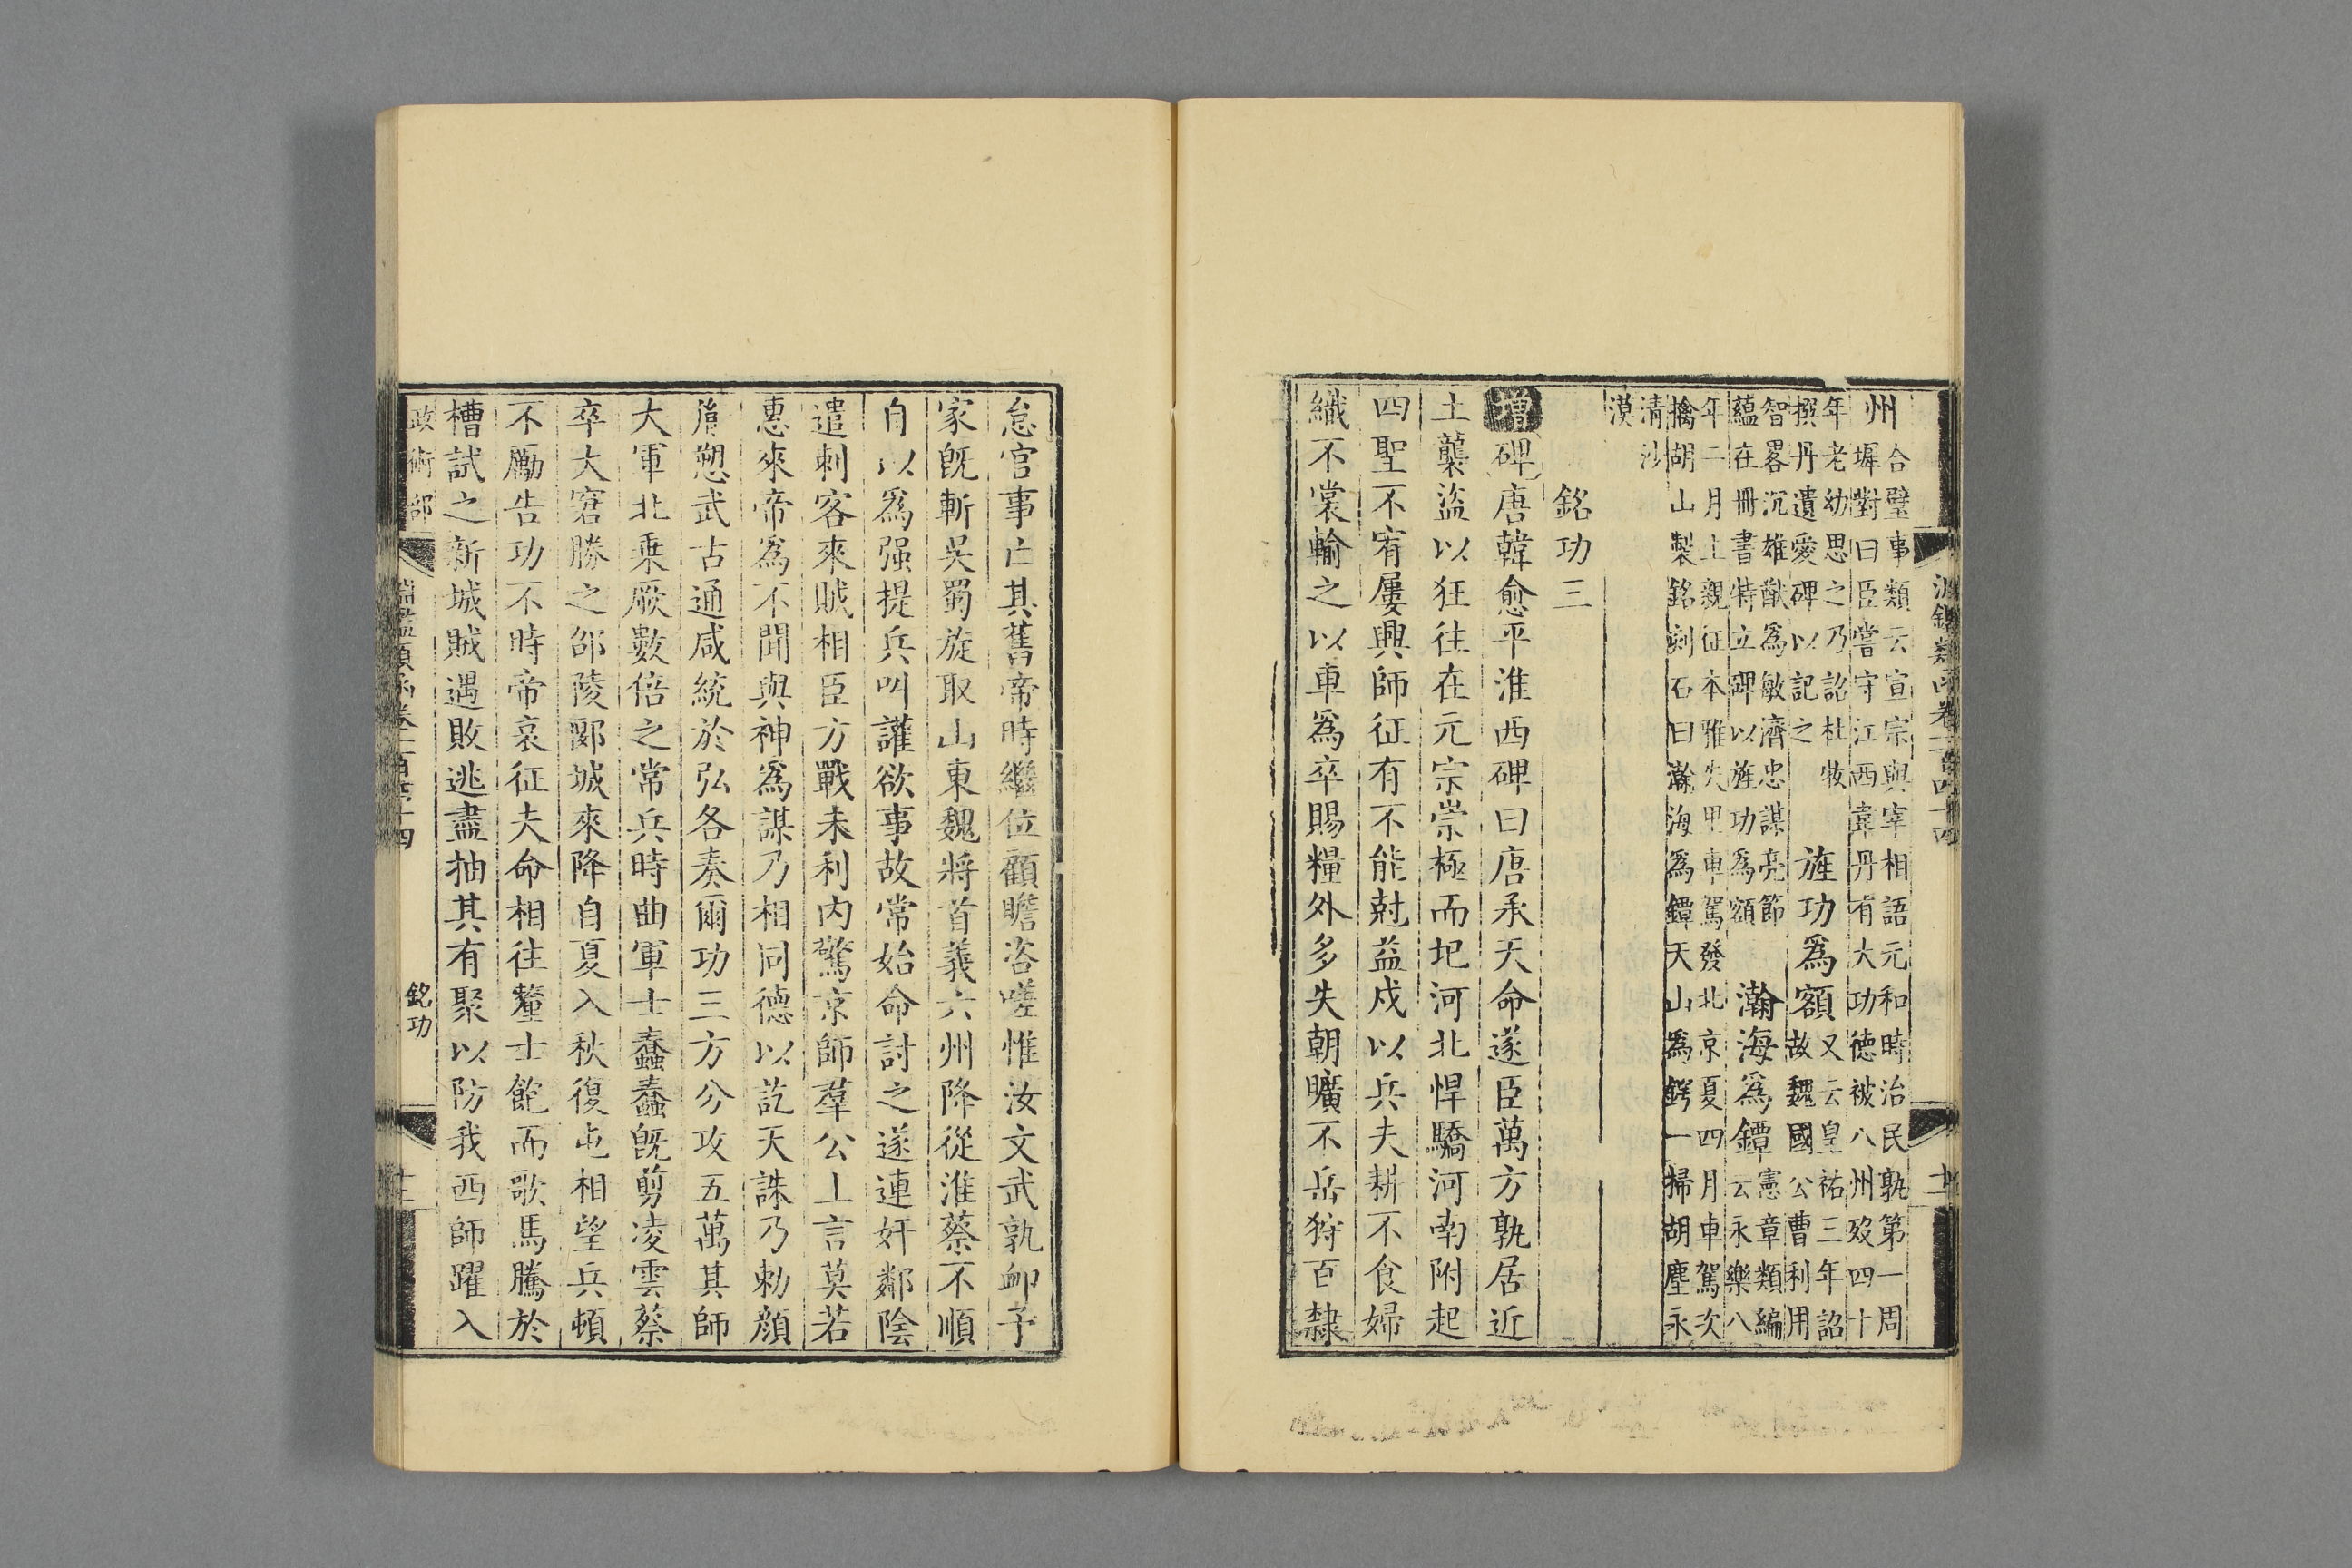 淵鑑類函卷二百四十四
州合璧事類云宣宗與宰相語元和時治民孰第一周
墀對曰臣嘗守江西韋丹有大功德被八州歿四十
年老幼思之乃詔杜牧
撰丹遺愛碑以記之
旌功爲額又云皇祐三年詔
故魏國公曹利用
智畧沉雄猷爲敏濟忠謀亮節
蘊在冊書特立碑以旌功爲額
瀚海爲鐔憲章類編
云永樂八
年二月上親征本雅失甲車駕發北京夏四月車駕次
擒胡山製銘刻石曰瀚海爲鐔天山爲鍔一掃胡塵永
清沙
漠
銘功三
增碑唐韓愈平淮西碑曰唐承天命遂臣萬方孰居近
土襲盜以狂往在元宗崇極而圯河北悍驕河南附起
四聖不宥屢興師征有不能尅益戍以兵夫耕不食婦
織不裳輸之以車爲卒賜糧外多失朝曠不岳狩百隸
怠官事亡其舊帝時繼位顧瞻咨嗟惟汝文武孰卹予
家旣斬吳蜀旋取山東魏將首義六州降從淮蔡不順
自以爲强提兵叫讙欲事故常始命討之遂連奸鄰陰
遣刺客來賊相臣方戰未利内驚京師羣公上言莫若
惠來帝爲不聞與神爲謀乃相同德以訖天誅乃勑顔
㣧愬武古通咸統於弘各奏爾功三方分攻五萬其師
大軍北乗厥數倍之常兵時曲軍士蠢蠢旣翦凌雲蔡
卒大窘勝之邵陵郾城來降自夏入秋復屯相望兵頓
不勵告功不時帝哀征夫命相往釐士飽而歌馬騰於
槽試之新城賊遇敗逃盡抽其有聚以防我西師躍入
政術部
淵鑑類函卷二百四十四
銘功